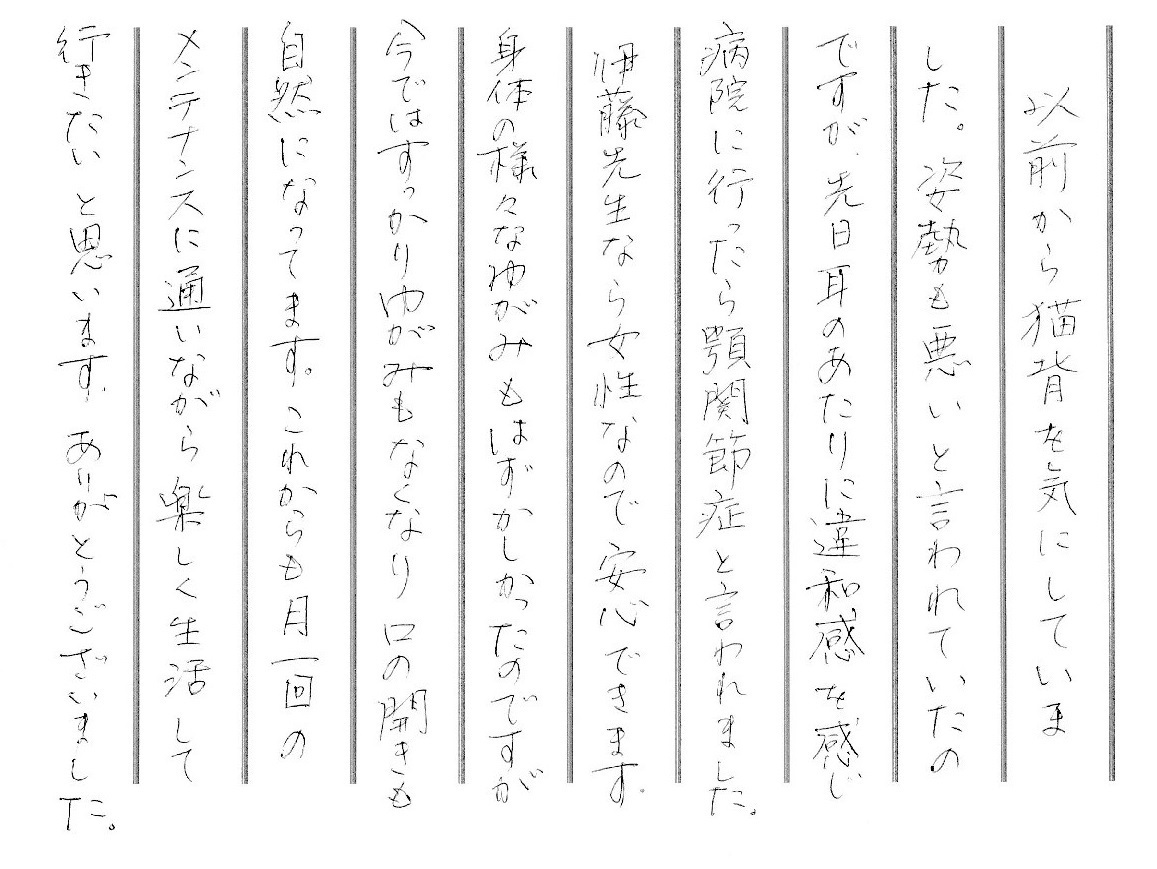 以前から猫背を気にしていま
した。姿勢も悪いと言われていたの
ですが、先日耳のあたりに違和感を感じ
病院に行ったら顎関節症と言われました。
伊藤先生なら女性なので安心できます。
身体の様々なゆがみもはずかしかったのですが
今ではすっかりゆがみもなくなり口の開きも
自然になってます。これからも月一回の
メンテナンスに通いながら楽しく生活して
行きたいと思います。ありがとうございました。